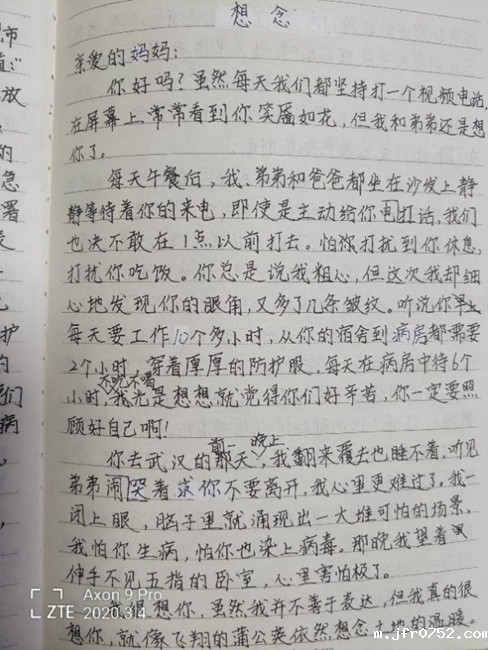 想 念
亲爱的妈妈:
你好吗?虽然每天我们都坚持打一个视频电话,
在屏幕上常常看到你笑靥如花,但我和弟弟还是想
你了。
每天午餐后,我、弟弟和爸爸都坐在沙发上静
静等待着你的来电,即使是主动给你电打话,我们
也决不敢在1点以前打去。怕你打扰到你休息,
打扰你吃饭。你总是说我粗心,但这次我却细
心地发现你的眼角,又多了几条皱纹。听说你早上
每天要工作10个多小时,从你的宿舍到病房都需要
2个小时,穿着厚厚的防护服,每天在病房中待6个
不吃不喝
小时,我光是想想就觉得你们好辛苦,你一定要照
顾好自己啊!
前一 晚上
你去武汉的那天,我翻来覆去也睡不着,听见
弟弟闹哭着求你不要离开,我心里更难过了。我一
闭上眼,脑子里就涌现出一大堆可怕的场景,
我怕你生病,怕你也染上病毒。那晚我望着黑
伸手不见五指的卧室,心里害怕极了。
我很想你,虽然我并不善于表达,但我真的很
想你,就像飞翔的蒲公英依然想念土地的温暖。
市
道
放
的
急
署
护
的
们
病
Axon 9 Pro
ZTE 2020.3.4
m.jfr0752.com